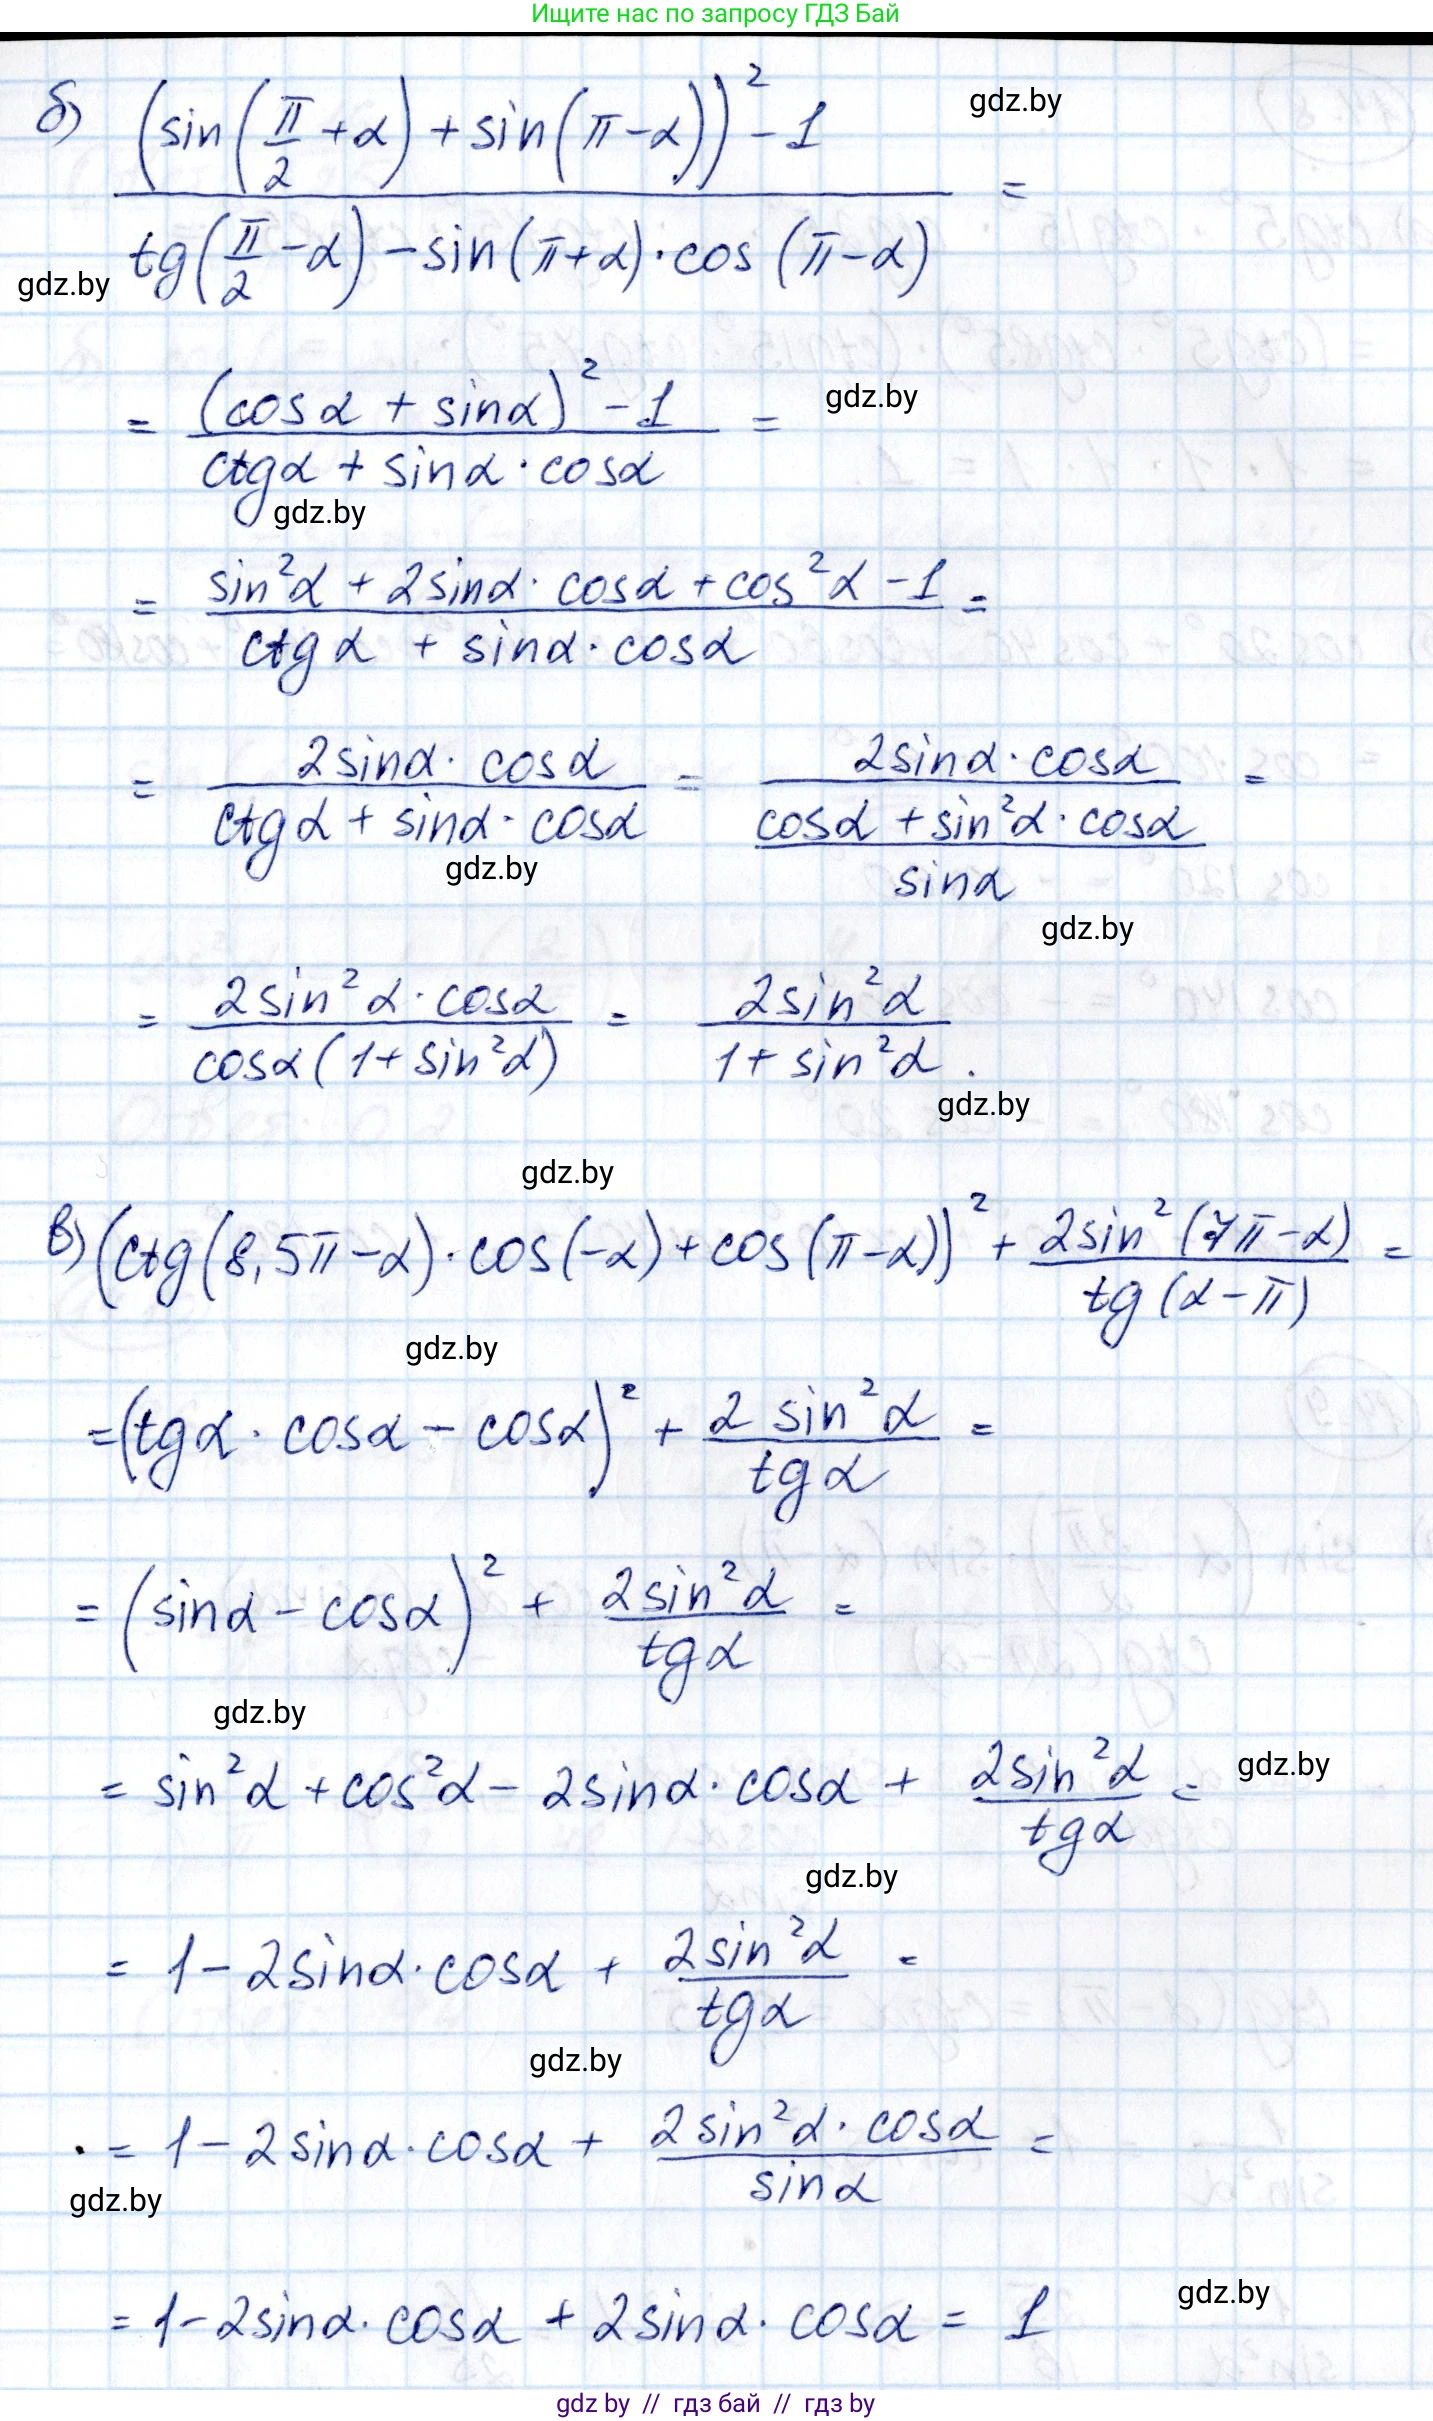 Ищите нас по запросу ГДЗ Бай
б) (sin(π/2 + α) + sin(π − α))² − 1 / tg(π/2 − α) − sin(π + α) · cos(π − α) =
gdz.by
gdz.by
= (cos α + sin α)² − 1 / ctg α + sin α · cos α =
gdz.by
gdz.by
= sin²α + 2sin α · cos α + cos²α − 1 / ctg α + sin α · cos α =
= 2sin α · cos α / ctg α + sin α · cos α = 2sin α · cos α / cos α + sin²α · cos α / sin α =
gdz.by
gdz.by
= 2sin²α · cos α / cos α (1 + sin²α) = 2sin²α / 1 + sin²α.
gdz.by
gdz.by
в) (ctg(8,5π − α) · cos(−α) + cos(π − α))² + 2sin²(7π − α) / tg(α − π) =
gdz.by
= (tg α · cos α − cos α)² + 2 sin²α / tg α =
= (sin α − cos α)² + 2sin²α / tg α =
gdz.by
= sin²α + cos²α − 2sin α · cos α + 2sin²α / tg α =
gdz.by
gdz.by
= 1 − 2sin α · cos α + 2sin²α / tg α =
gdz.by
= 1 − 2sin α · cos α + 2sin²α · cos α / sin α =
gdz.by
gdz.by
= 1 − 2sin α · cos α + 2sin α · cos α = 1
gdz by // гдз бай // гдз by